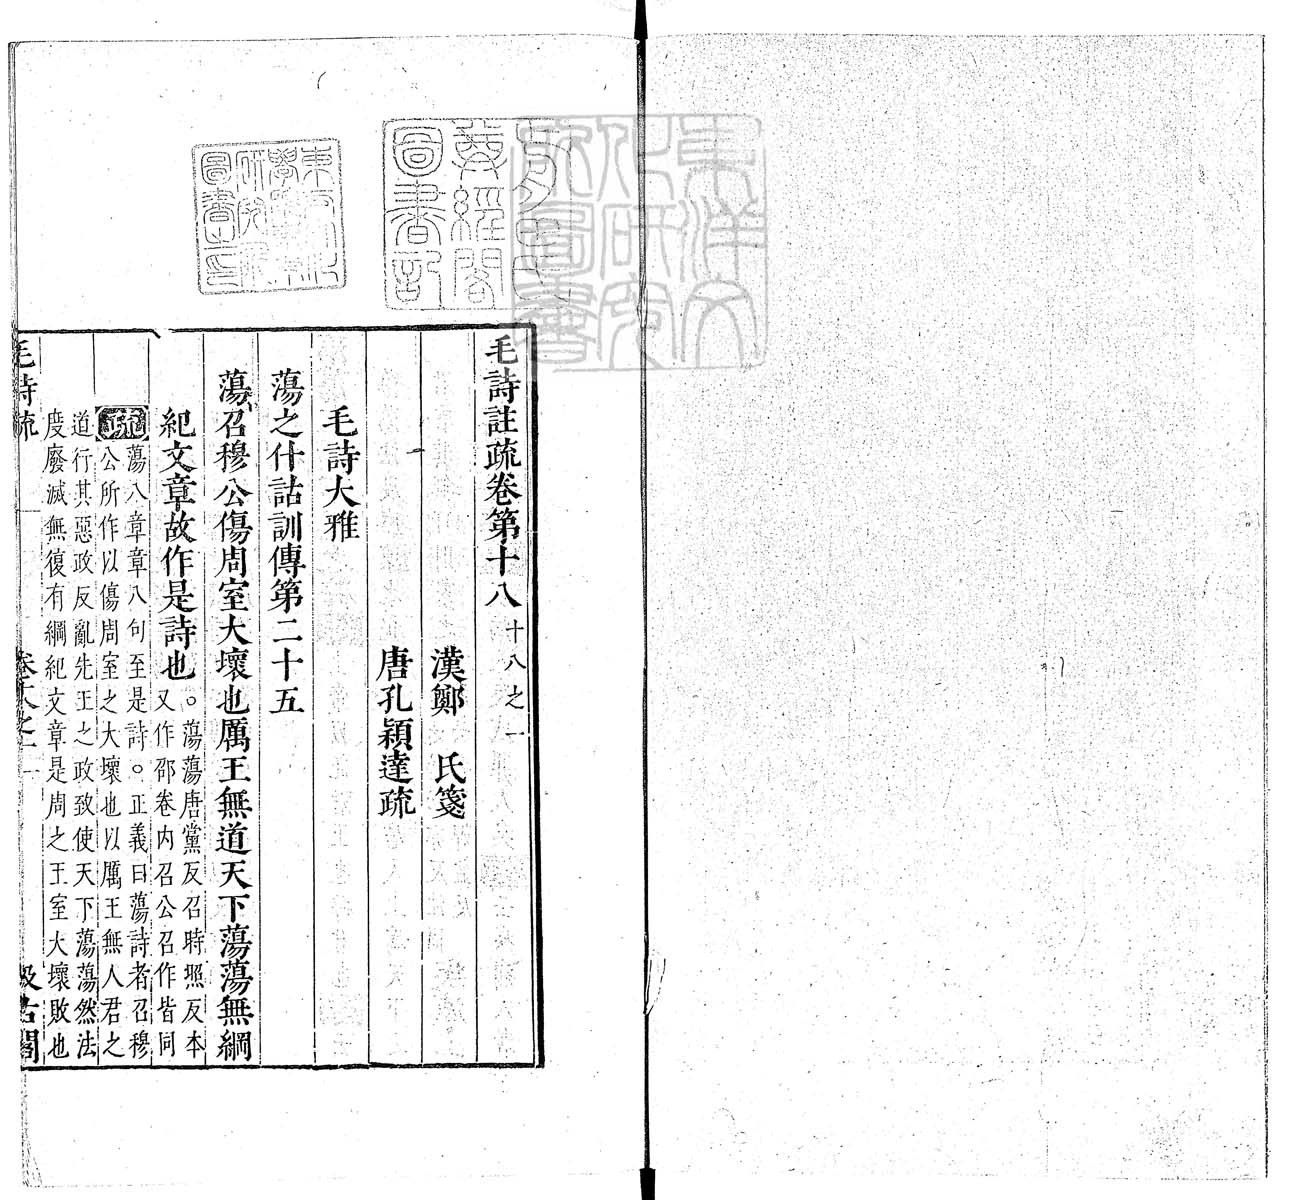 毛詩註疏卷第十八 十八之一
漢鄭　氏箋
唐孔穎達疏
毛詩大雅
蕩之什詁訓傳第二十五
蕩召穆公傷周室大壞也厲王無道天下蕩蕩無綱
紀文章故作是詩也
○蕩蕩唐黨反召時照反本
又作邵卷內召公召作皆同
疏
蕩八章章八句至是詩○正義曰蕩詩者召穆
公所作以傷周室之大壞也以厲王無人君之
道行其惡政反亂先王之政致使天下蕩蕩然法
度廢滅無復有綱紀文章是周之王室大壞敗也
毛詩疏
卷十八之一
一
汲古閣
尊經閣
圖書記
東洋文
化研究
所圖書